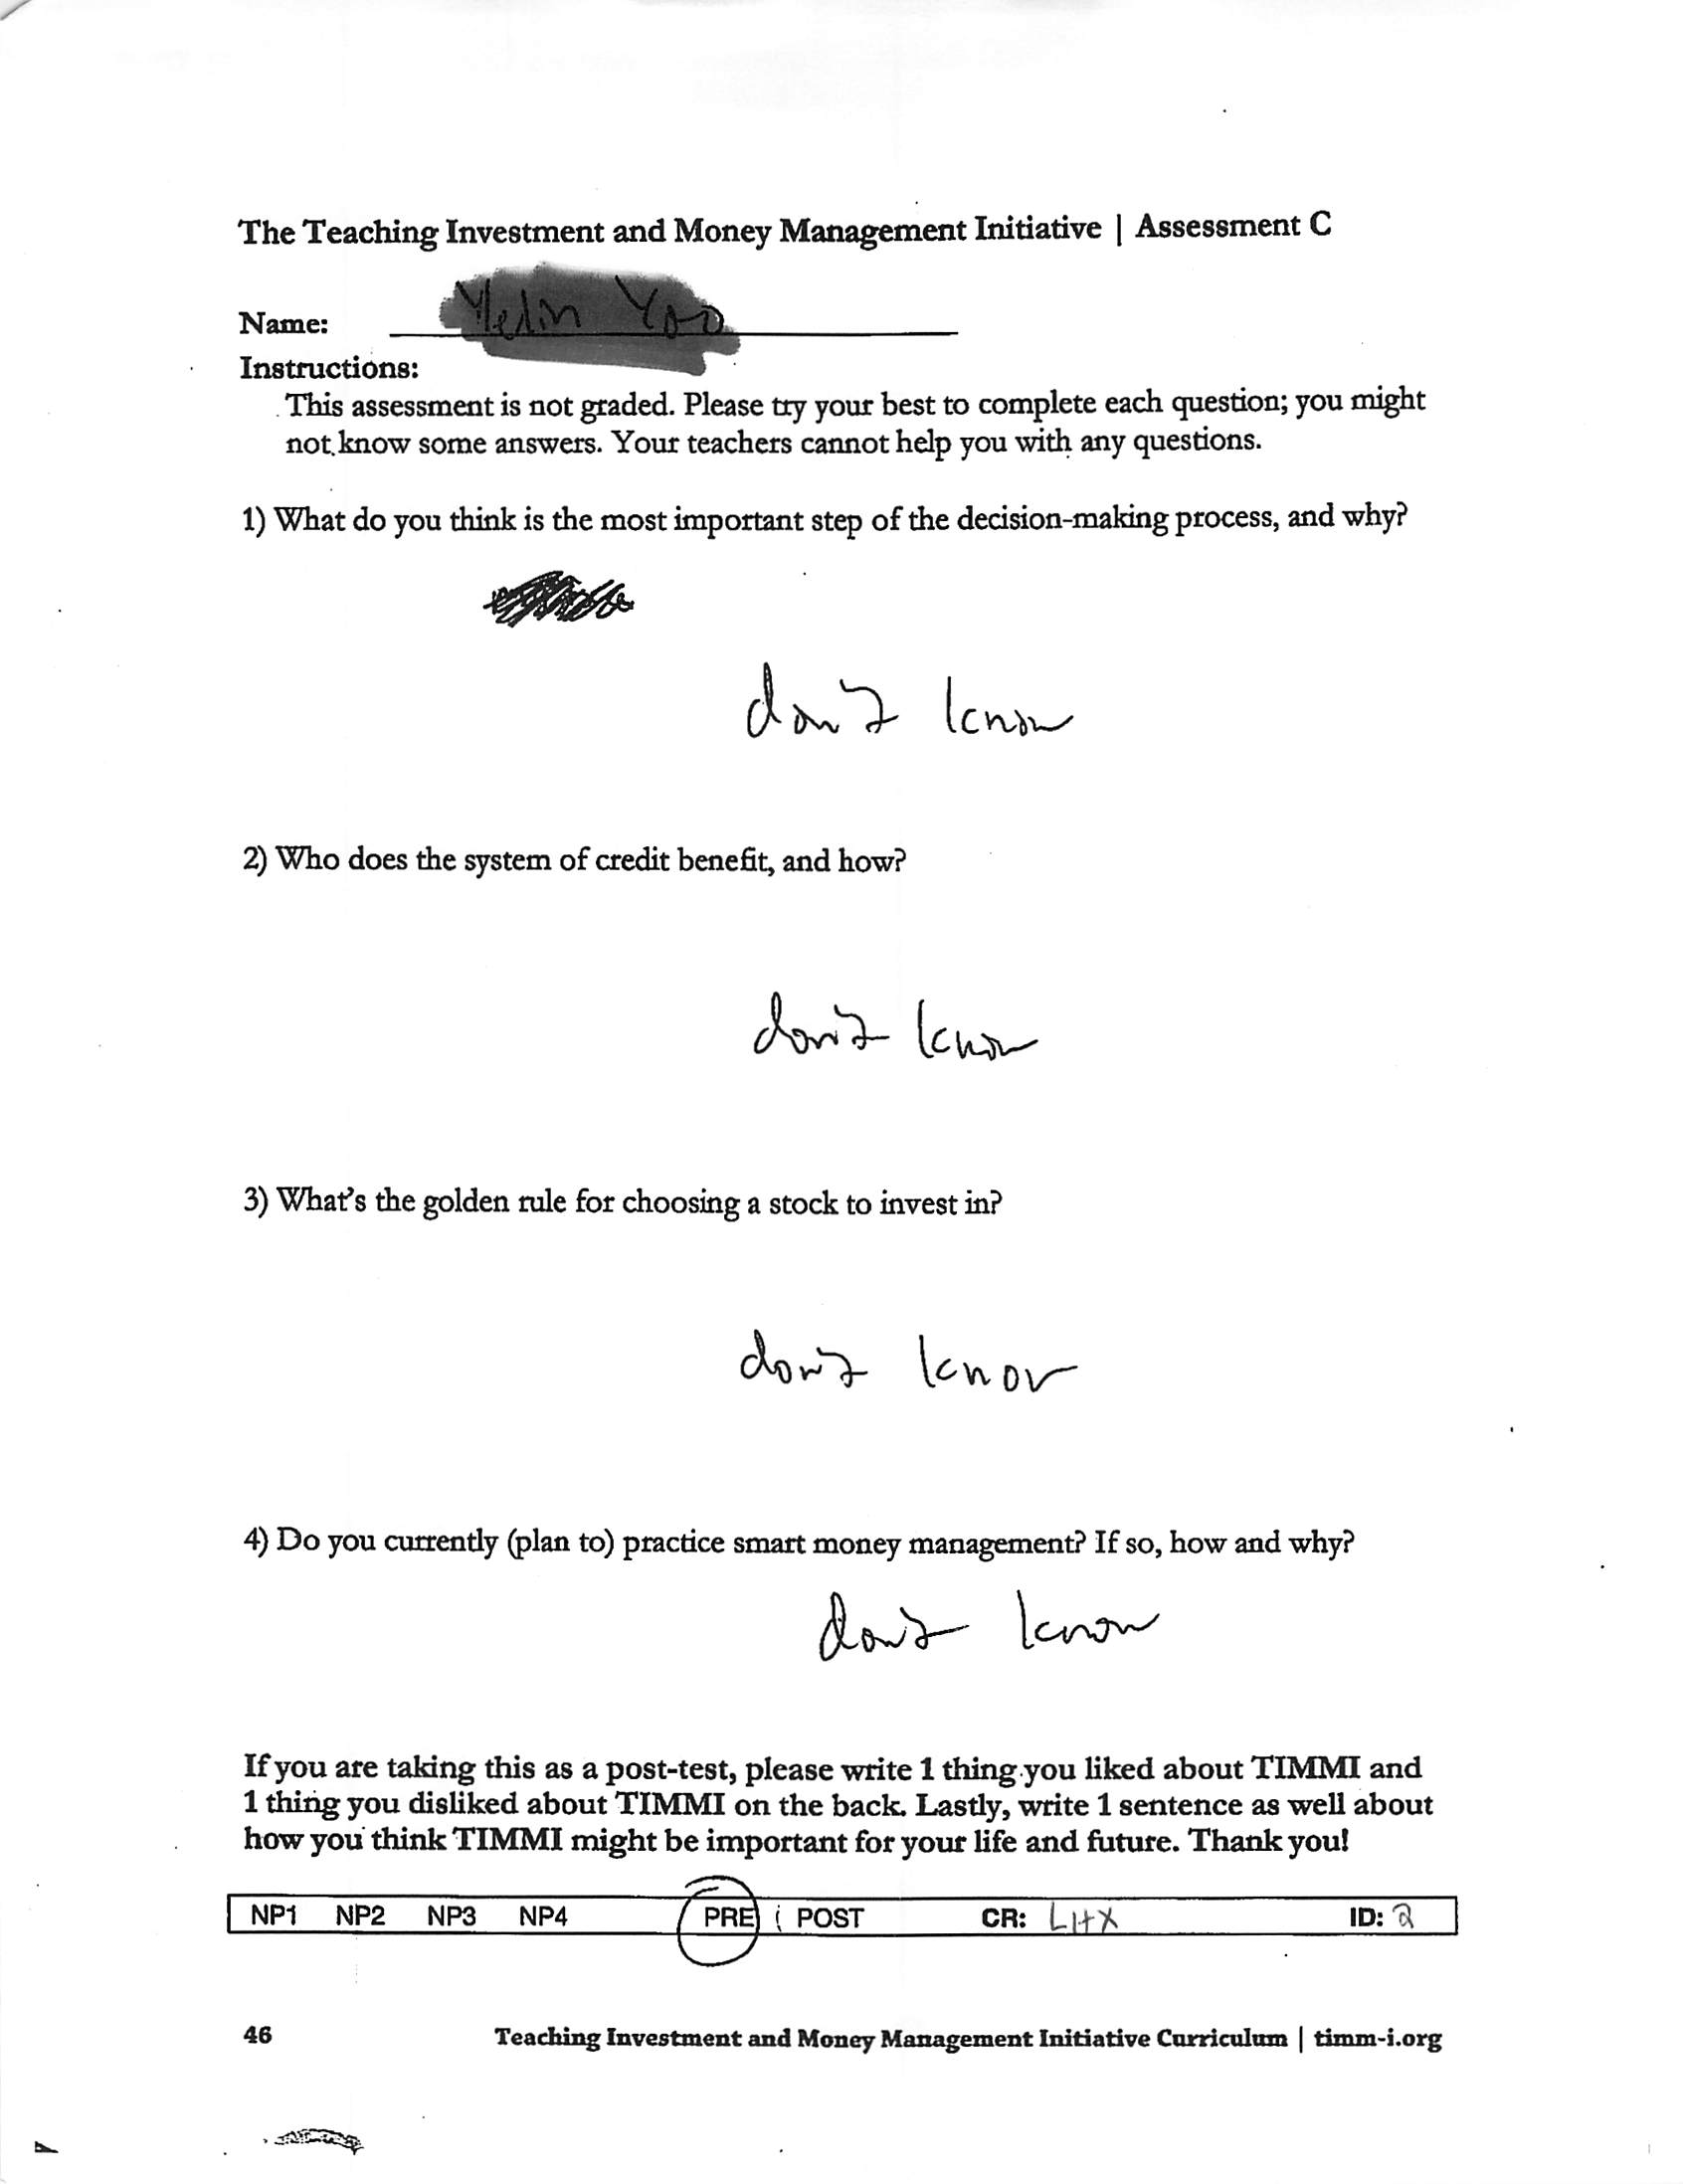 The Teaching Investment and Money Management Initiative | Assessment C
Name:
Instructions:
This assessment is not graded. Please try your best to complete each question; you might
not know some answers. Your teachers cannot help you with any questions.
1) What do you think is the most important step of the decision-making process, and why?
don't know
2) Who does the system of credit benefit, and how?
don't know
3) What's the golden rule for choosing a stock to invest in?
don't know
4) Do you currently (plan to) practice smart money management? If so, how and why?
don't know
If you are taking this as a post-test, please write 1 thing you liked about TIMMI and
1 thing you disliked about TIMMI on the back. Lastly, write 1 sentence as well about
how you think TIMMI might be important for your life and future. Thank you!
NP1 NP2 NP3 NP4 PRE POST CR: LHX ID: 2
46 Teaching Investment and Money Management Initiative Curriculum | timm-i.org